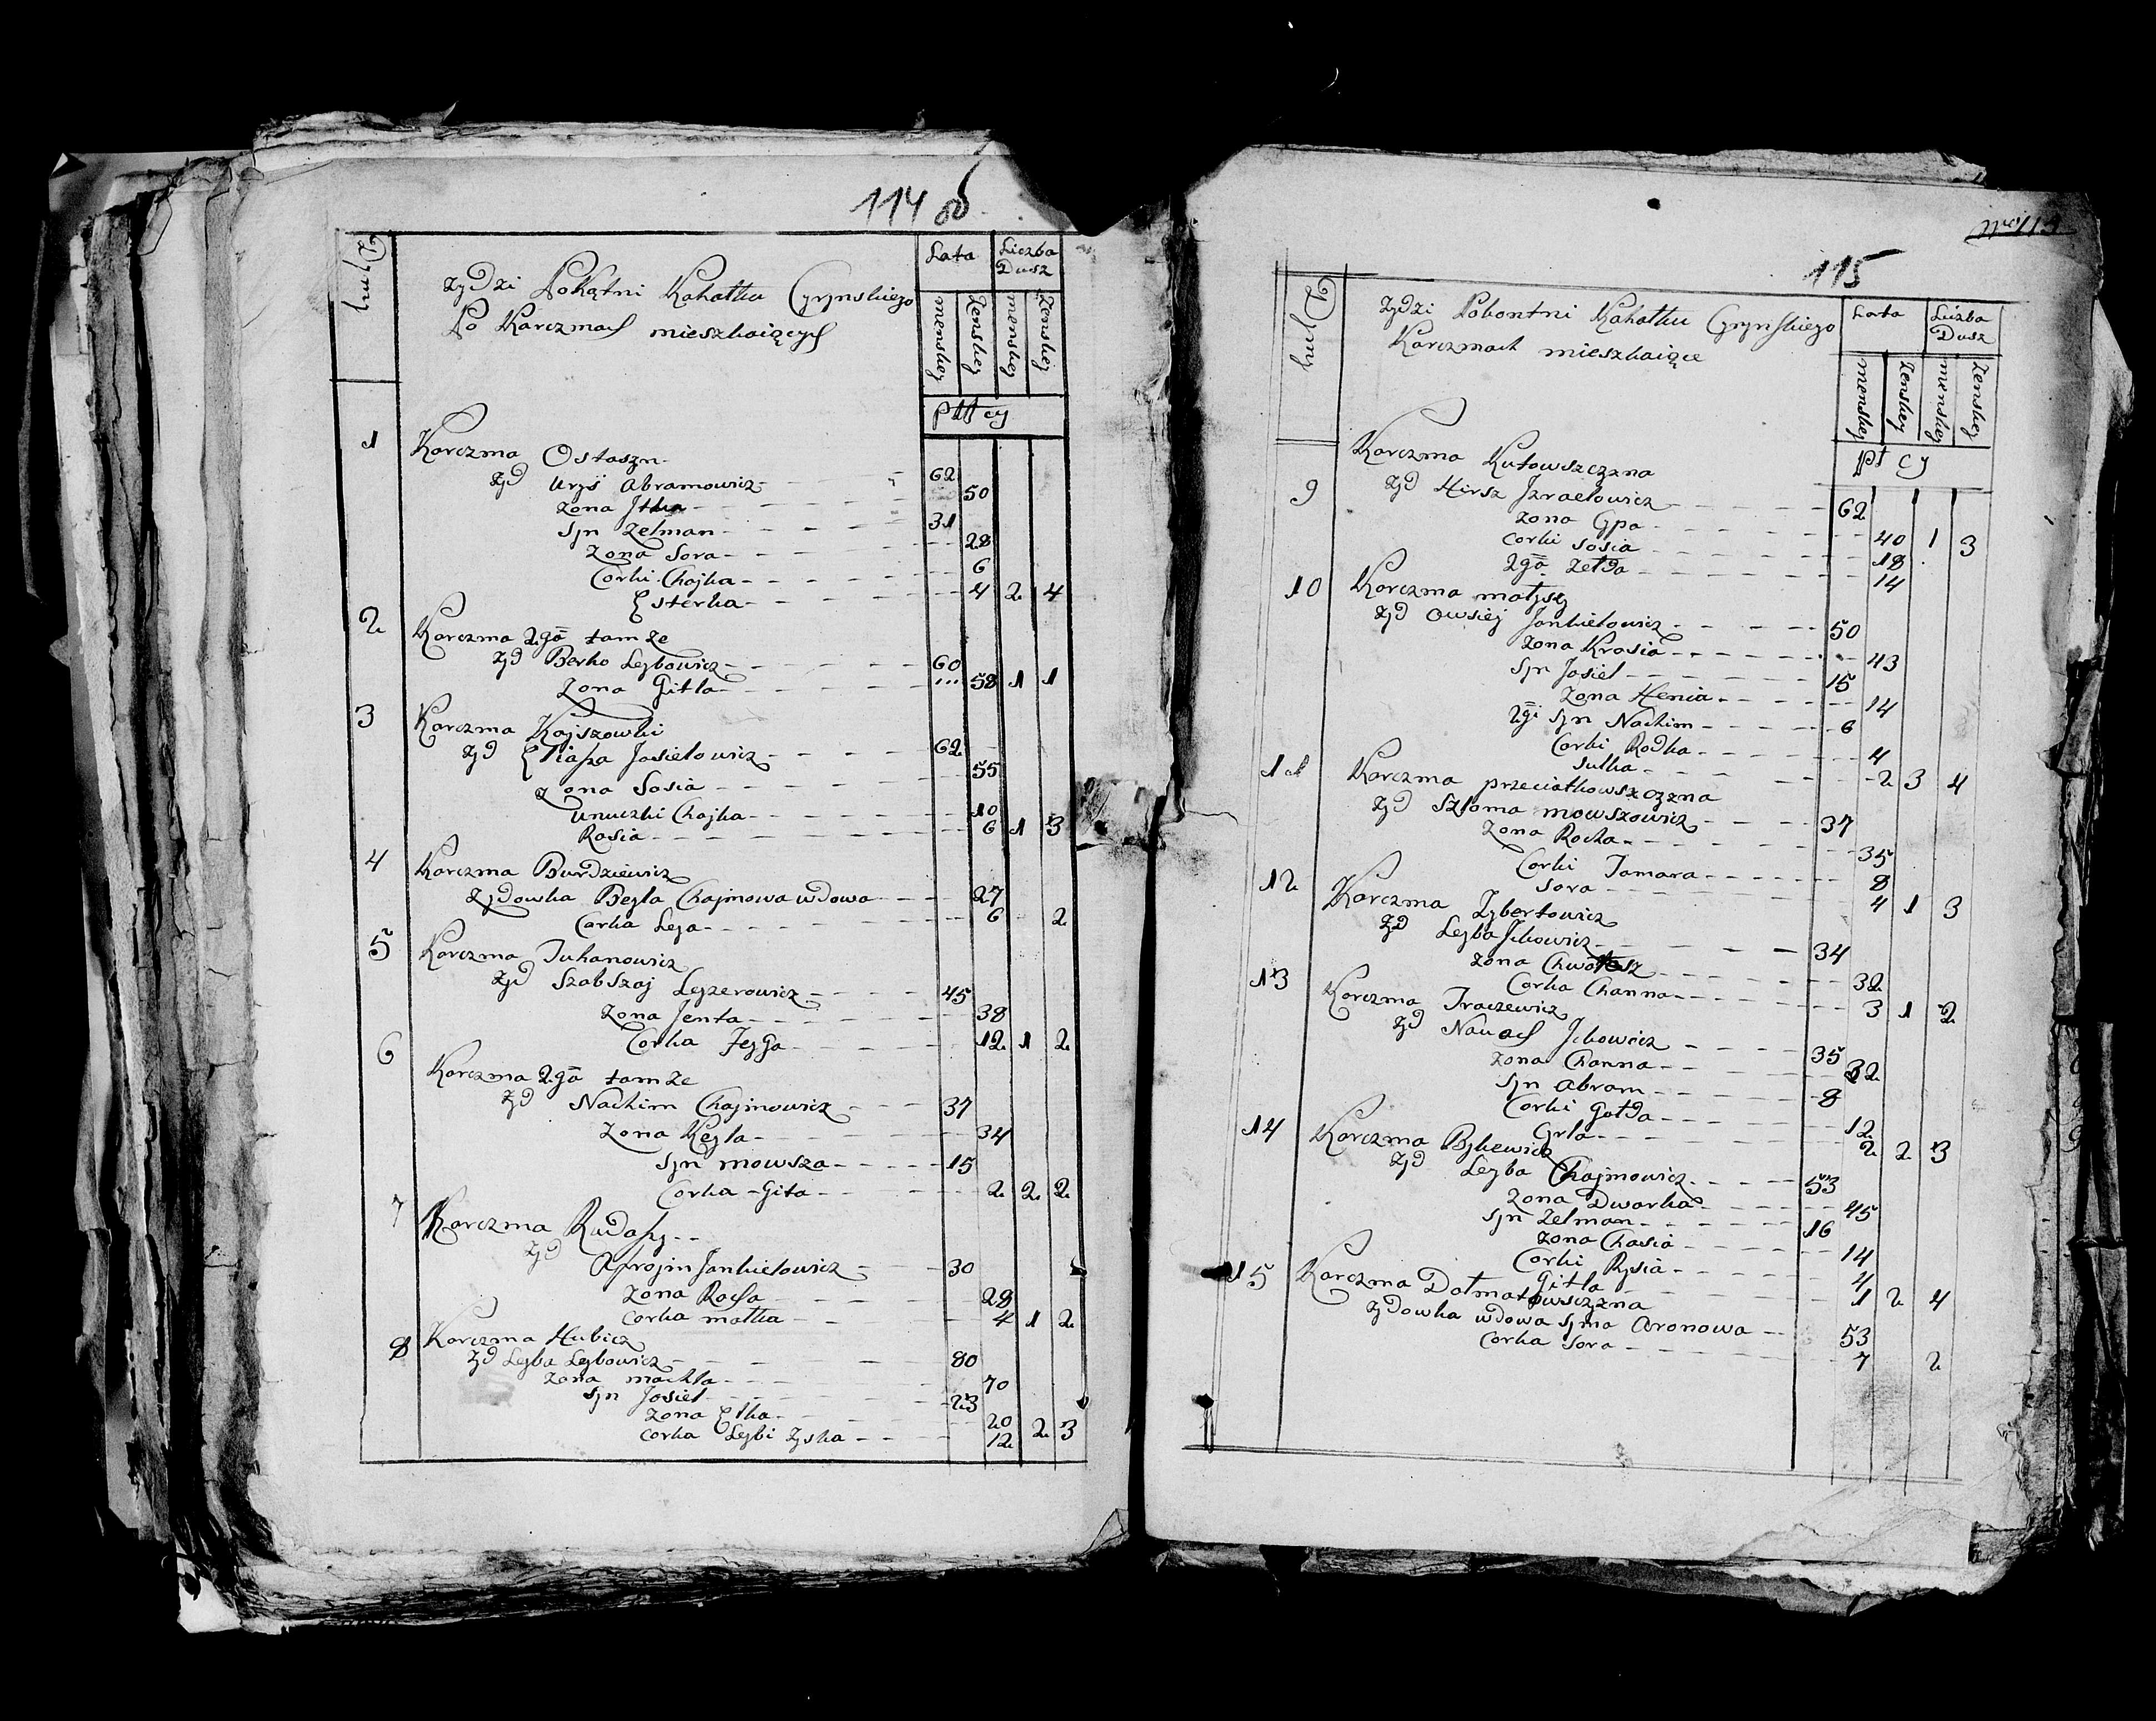 114 об.
Dymy
Żydzi Pokątni Kahałku Cyrynskiego
Po Karczmach mieszkaiących
Lata
Liczba Dusz
menskiey
Zenskiey
menskiey
Zenskiey
płci
1 Karczma Ostaszyn
Zyd Uryś Abramowicz 62
Zona Itka 50
Syn Zelman 31
Zona Sora 28
Corki Chayka 6
Esterka 4 2 4
2 Karczma 2ga tamże
Zyd Berko Leybowicz 60
Zona Gitla 58 1 1
3 Karczma Kayszowki
Zyd Eliasza Josielowicz 62
Zona Sosia 55
Unuczki Chayka 10
Rasia 6 1 3
4 Karczma Burdziewicz
Zydowka Beyla Chaymowa wdowa 27
Corka Leja 6 2
5 Karczma Juhanowicz
Zyd Szabszay Leyzerowicz 45
Zona Jenta 38
Corka 12 1 2
6 Karczma 2ga tamże
Zyd Nachim Chaymowicz 37
Zona Keyla 34
Syn mowsza 15
Corka Gita 2 2 2
7 Karczma
Zyd Jankielowicz 30
Zona Rocha 28
Corka matka 4 1 2
8 Karczma Hubicz
Zyd Leyba Leybowicz 80
Zona machla 70
Syn Josiel 23
Zona Elka 20
Corka Leybi Zyska 12 2 3
115
Dymy
Zydzi Pokontni Kahałku Cyrynskiego
Karczmach mieszkaiące
Lata
Liczba Dusz
menskiey
Zenskiey
menskiey
Zenskiey
płci
Karczma Kutowszczyzna
9 Zyd Hirsz Izraelowicz 62
Zona Gpa 40 1 3
Corki Sosia 18
2ga Zelda 14
10 Karczma
Zyd Owsiey Jankielowicz 50
Zona Krasia 43
Syn Josiel 15
Zona Henia 14
2gi Syn Nachim 6
Corki Rodka 4
Sulka 2 3 4
11 Karczma przeciatkowszczyzna
Zyd Szloma mowszowicz 37
Zona Rocha 35
Corki Tamara 8
Sora 4 1 3
12 Karczma Zybertowicz
Zyd Leyba Ickowicz 34
Zona 32
Corka Channa 3 1 2
13 Karczma Traczewicz
Zyd Nauach Ickowicz 35
Zona Channa 32
Syn Abram 8
Corki Gołda 12
Cyrla 2 2 3
14 Karczma Bykiewicz
Zyd Leyba Chaymowicz 53
Zona Dwarka 45
Syn Zelman 16
Zona Chasia 14
Corki Rysia 4
Gitla 1 2 4
15 Karczma Dołmatowszczyzna
Zydowka wdowa Syma Aronowa 53
Corka Sora 7 2